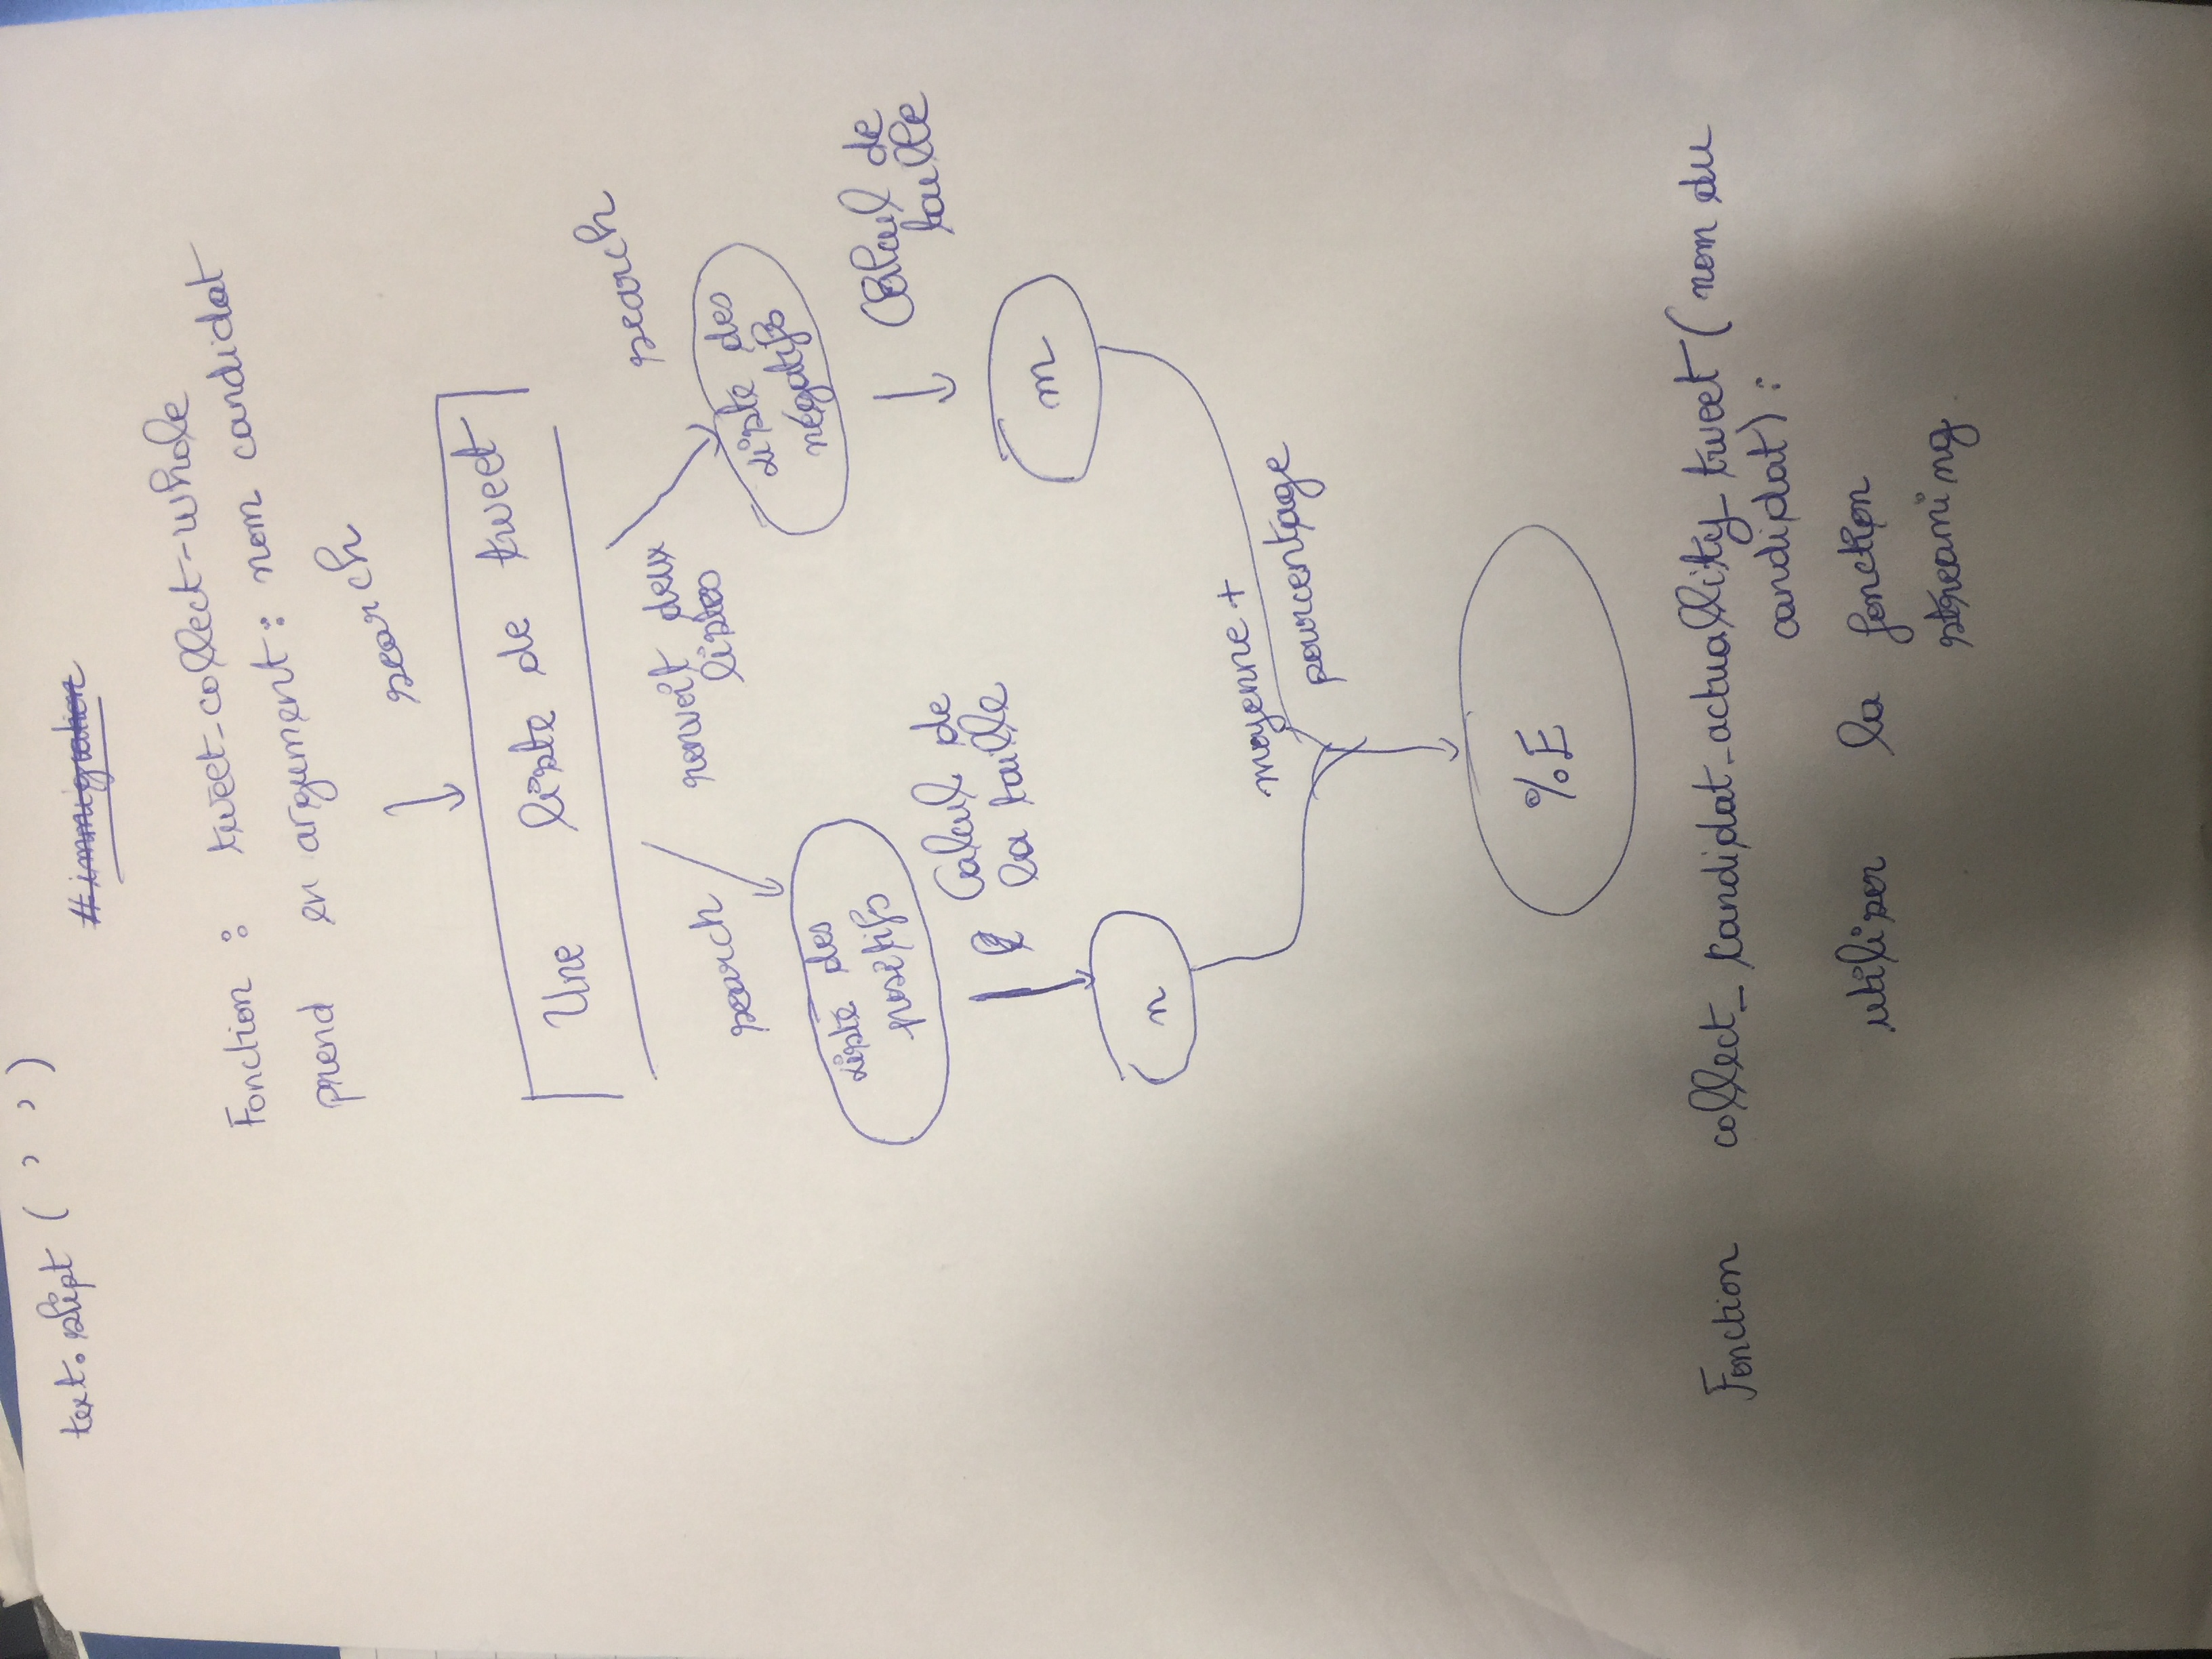 text.slipt ( ' ' )
#immigration
Fonction : tweet_collect_whole
prend en argument : nom candidat
search
Une liste de tweet
search
renvoit deux
listes
search
Liste des
négatifs
Liste des
positifs
Calcul de
taille
Calcul de
la taille
m
n
moyenne +
pourcentage
%E
Fonction collect_candidat_actuallity_tweet ( nom du
candidat ) :
utiliser la fonction
streaming